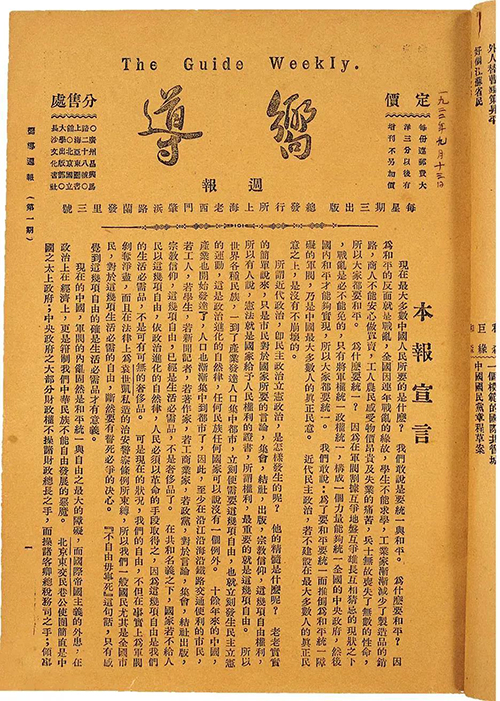 The Guide Weekly.
嚮導
週報
定價
每份連郵費大
洋三分以後有
增刊不另加價
一九二二年九月十三日
分售處
每星期三出版 總發行所上海老西門肇浜路蘭發里三號
本報宣言
現在最大多數中國人民所要的是什麼？ 我們敢說是要統一與和平。 爲什麼要和平？ 因
爲和平的反面就是戰亂，全國因連年戰亂的緣故，學生不能求學，工業家漸漸減少了製造品的銷
路，商人不能安心做買賣，工人農民感受物價昂貴及失業的痛苦，兵士無故喪失了無數的性命，
所以大家都要和平。 爲什麼要統一？ 因爲在軍閥割據互爭地盤互爭雄長互相猜忌的現狀之下
，戰亂是必不能免的，只有將軍權統一政權統一，構成一個力量能夠統一全國的中央政府，然後
國內和平才能夠實現，所以大家都要統一。 我們敢說：爲了要和平要統一而推倒爲和平統一障
礙的軍閥，乃是中國最大多數人的真正民意。 近代民主政治，若不建設在最大多數人的真正民
意之上，是沒有不崩壞的。
所謂近代政治，即民主政治立憲政治，是怎樣發生的呢？ 他的精髓是什麼呢？ 老老實實
的簡單說來，只是市民對於國家所要的言論，集會，結社，出版，宗教信仰，這幾項自由權利，
所以有人說，憲法就是國家給予人民權利的證書，所謂權利，最重要的就是這幾項自由。 所以
世界各種民族，一到了產業發達人口集中都市，立刻便需要這幾項自由，也就立刻發生民主立憲
的運動，這是政治進化的自然律，任何民族任何國家可以說沒有一個例外。 十餘年來的中國，
產業也開始發達了，人口也漸漸集中到都市了，因此，至少在沿江沿海沿鐵路交通便利的市民，
若工人，若學生，若新聞記者，若著作家，若工商業家，若政黨，對於言論，集會，結社出版，
宗教信仰，這幾項自由，已經是生活必需品，不是奢侈品了。 在共和名義之下，國家若不給人
民以這幾項自由，依政治進化的自然律，人民必須以革命的手段取得之，因爲這幾項自由是我們
的生活必需品，不是可有可無的奢侈品。 可是現在的狀況，我們的自由，不但在事實上爲軍閥
剝奪淨盡，而且在法律上爲袁世凱私造的治安警察條例所束縛，所以我們一般國民尤其是全國市
民，對於這幾項生活必需的自由，斷然要有誓死必爭的決心。 『不自由毋寧死』這句話，只有感
覺到這幾項自由的確是生活必需品才有意義。
現在的中國，軍閥的內亂固然是和平統一與自由之最大的障礙，而國際帝國主義的外患，在
政治上在經濟上，更是箝制我們中華民族不能自由發展的惡魔。 北京東交民巷公使團簡直是中
國之太上政府；中央政府之大部分財政權不操諸財政總長之手，而操諸客卿總稅務司之手；領事
嚮導週報 （第一期）
一
中國國民黨黨章程草案